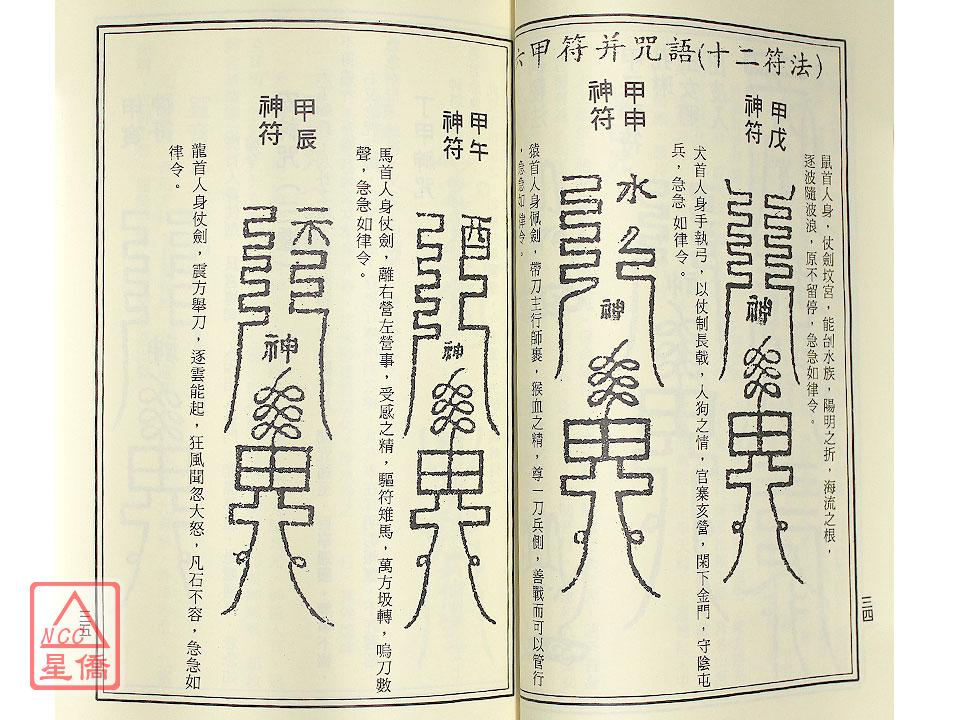 六甲符并咒語(十二符法)
鼠首人身，仗劍坟宮，能刣水族，陽明之折，海流之根，
逐波隨波浪，原不留停，急急如律令。
甲戊
神符
神
犬首人身手執弓，以仗制長戟，人狗之情，官寨亥營，閑下金門，守陰屯
兵，急急如律令。
甲申
神符
水
神
猿首人身佩劍，帶刀主行師裹，猴血之精，尊一刀兵側，善戰而可以管行
，急急如律令。
三四
甲午
神符
酉
神
馬首人身仗劍，離右營左營事，受感之精，驅符雉馬，萬方圾轉，鳴刀數
聲，急急如律令。
甲辰
神符
神
龍首人身仗劍，震方舉刀，逐雲能起，狂風聞忽大怒，凡石不容，急急如
律令。
三五
NCC
星僑